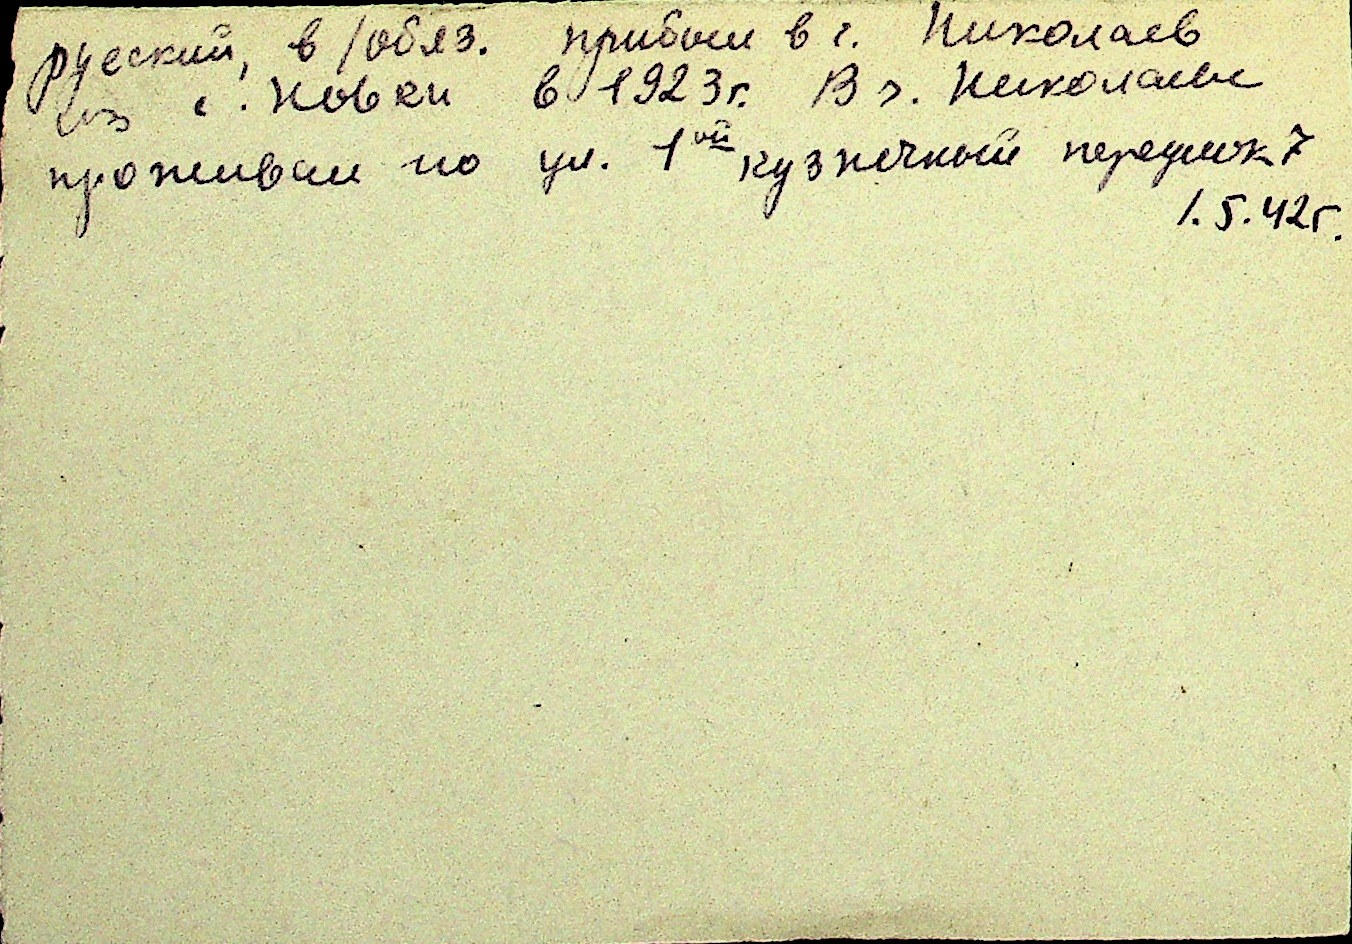 русский, в/обяз. прибыл в г. Николаев
из с. Новки в 1923г. В г. Николаеве
проживал по ул. 1ой кузнечный переулок 7
1.5.42г.